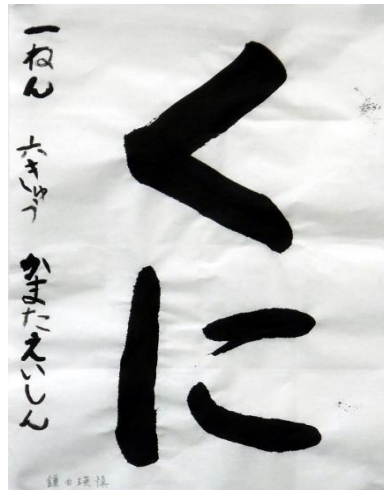 くに
一ねん 六きゅう かまたえいしん
鎌田瑛慎